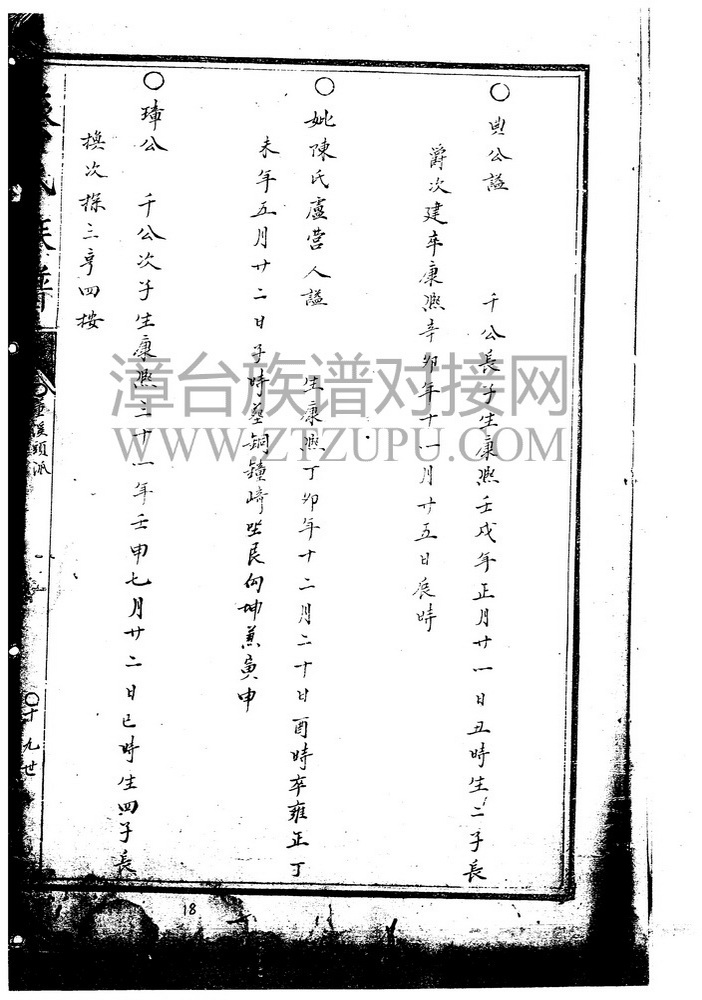 ○ 公諡 千公長子生康熈壬戌年正月廿一日丑時生二子長
爵次建卒康熈辛卯年十一月廿五日辰時
○ 妣陳氏盧营人諡 生康熈丁卯年十二月二十日酉時卒雍正丁
未年五月廿二日子時塟銅鐘崎坐艮向坤兼寅申
○ 璋公 千公次子生康熈三十一年壬申七月廿二日巳時生四子長
横次探三亨四按
氏族譜
後頭派
○十九世
漳台族谱对接网
WWW.ZTZUPU.COM
18